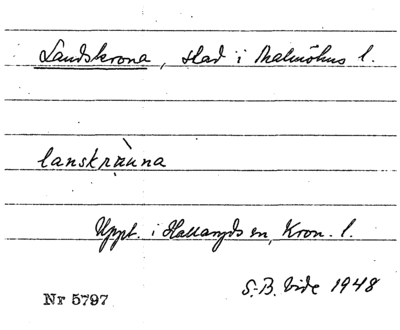 Landskrona, stad i Malmöhus l.
lanskräuna
Uppt. i Hallaryds sn, Kron. l.
S.-B. Vide 1948
Nr 5797